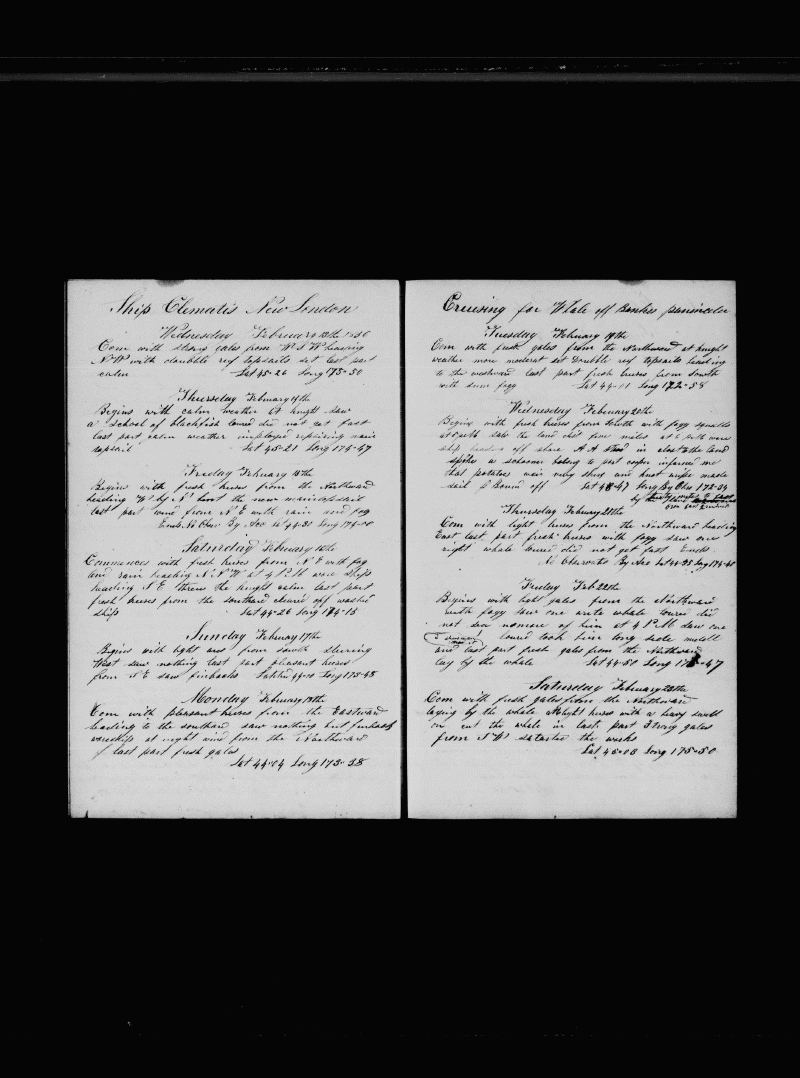 Ship Clematis New London
Wednesday February 13th
Com with strong gales from W S W heading
N W with doubble reef topsails set last part
calm Lat 45-26 Long 175-50
Thursday February 14th
Begins with calm weather at knight saw
a school of blackfish lowrd did not get fast
last part calm weather imployed repairing main
topsail Lat 45-21 Long 174-47
Friday February 15th
Begins with fresh brises from the Northward
heading W by N bent the new maintopsail
last part wind from N E with rain and fog
Ends No Obser By Acc Lat 44-31 Long 174-00
Saturday February 16th
Commences with fresh brises from N E with fog
and rain heading N N W at 4 P M wore ship
heading S E threw the knight calm last part
fresh brises from the southard cleard off washd
ship Lat 44-26 Long 174-15
Sunday February 17th
Begins with light ares from south stearing
West saw nothing last part pleasant brises
from N E saw finbacks Lat 44-10 Long 175-45
Monday February 18th
Com with pleasant brises from the Eastward
heading to the southard saw nothing but finbacks
wore ship at night wind from the Northward
last part fresh gales
Lat 44-04 Long 173-38
Cruising for Whale off Bankes peninceler
Tuesday February 19th
Com with fresh gales from the Northward at knight
weather more moderat set doubble reef topsails heading
to the westward last part fresh brises from south
with sum fogg Lat 44-11 Long 172-58
Wednesday February 20th
Begins with fresh brises from South with foggy squalls
at 5 saw the land dist five miles at 6 P M wore
ship off shore A M stood in close to the land
spoke a schooner belong to port cooper informed me
that potatoes wair very skers and knot ripe made
sail & Bound off Lat 43-47 Long By Obs 172-54
by
Thursday February 21st
Com with light brises from the Northward heading
East last part fresh brises with foggy saw one
right whale lowrd did not get fast Ends
No Observato By Acc Lat 44-35 Long 174-41
Friday Feb 22th
Begins with light gales from the Northward
with foggy saw one write whale lowrd did
not see nomore of him at 4 P M saw one
lowrd took him long side
and last part fresh gales from the Northward
lay by the whale Lat 44-51 Long 175-47
Saturday February 23th
Com with fresh gales from the Northward
laying by the whale Midlight brises with a heavy swell
on cut the whale in last part strong gales
from N W started the works
Lat 45-03 Long 175-50